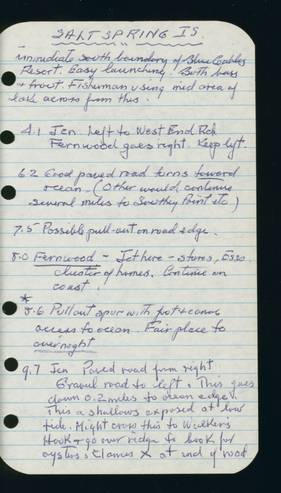 SALTSPRING IS.
immediate south boundary of Blue Gables
Resort. Easy launching. Both bass
+ trout. Fisherman using mid area of
lake across from this.
4.1 Jcn. Left to West End Rd.
Fernwood goes right. Keep left.
6.2 Good paved road turns toward
ocean. (Other would continue
several miles to Southey Point etc.)
7.5 Possible pull-out on road edge.
8.0 Fernwood - Jct here - store, Esso
cluster of homes. Continue on
coast.
*
8.6 Pullout spur with foot + canoe
access to ocean. Fair place to
overnight
9.7 Jcn Paved road from right
Gravel road to left. This goes
down 0.2 miles to ocean edge.
This a shallows exposed at low
tide. Might cross this to Walker's
Hook + go over ridge to look for
oysters & clams X at end of road